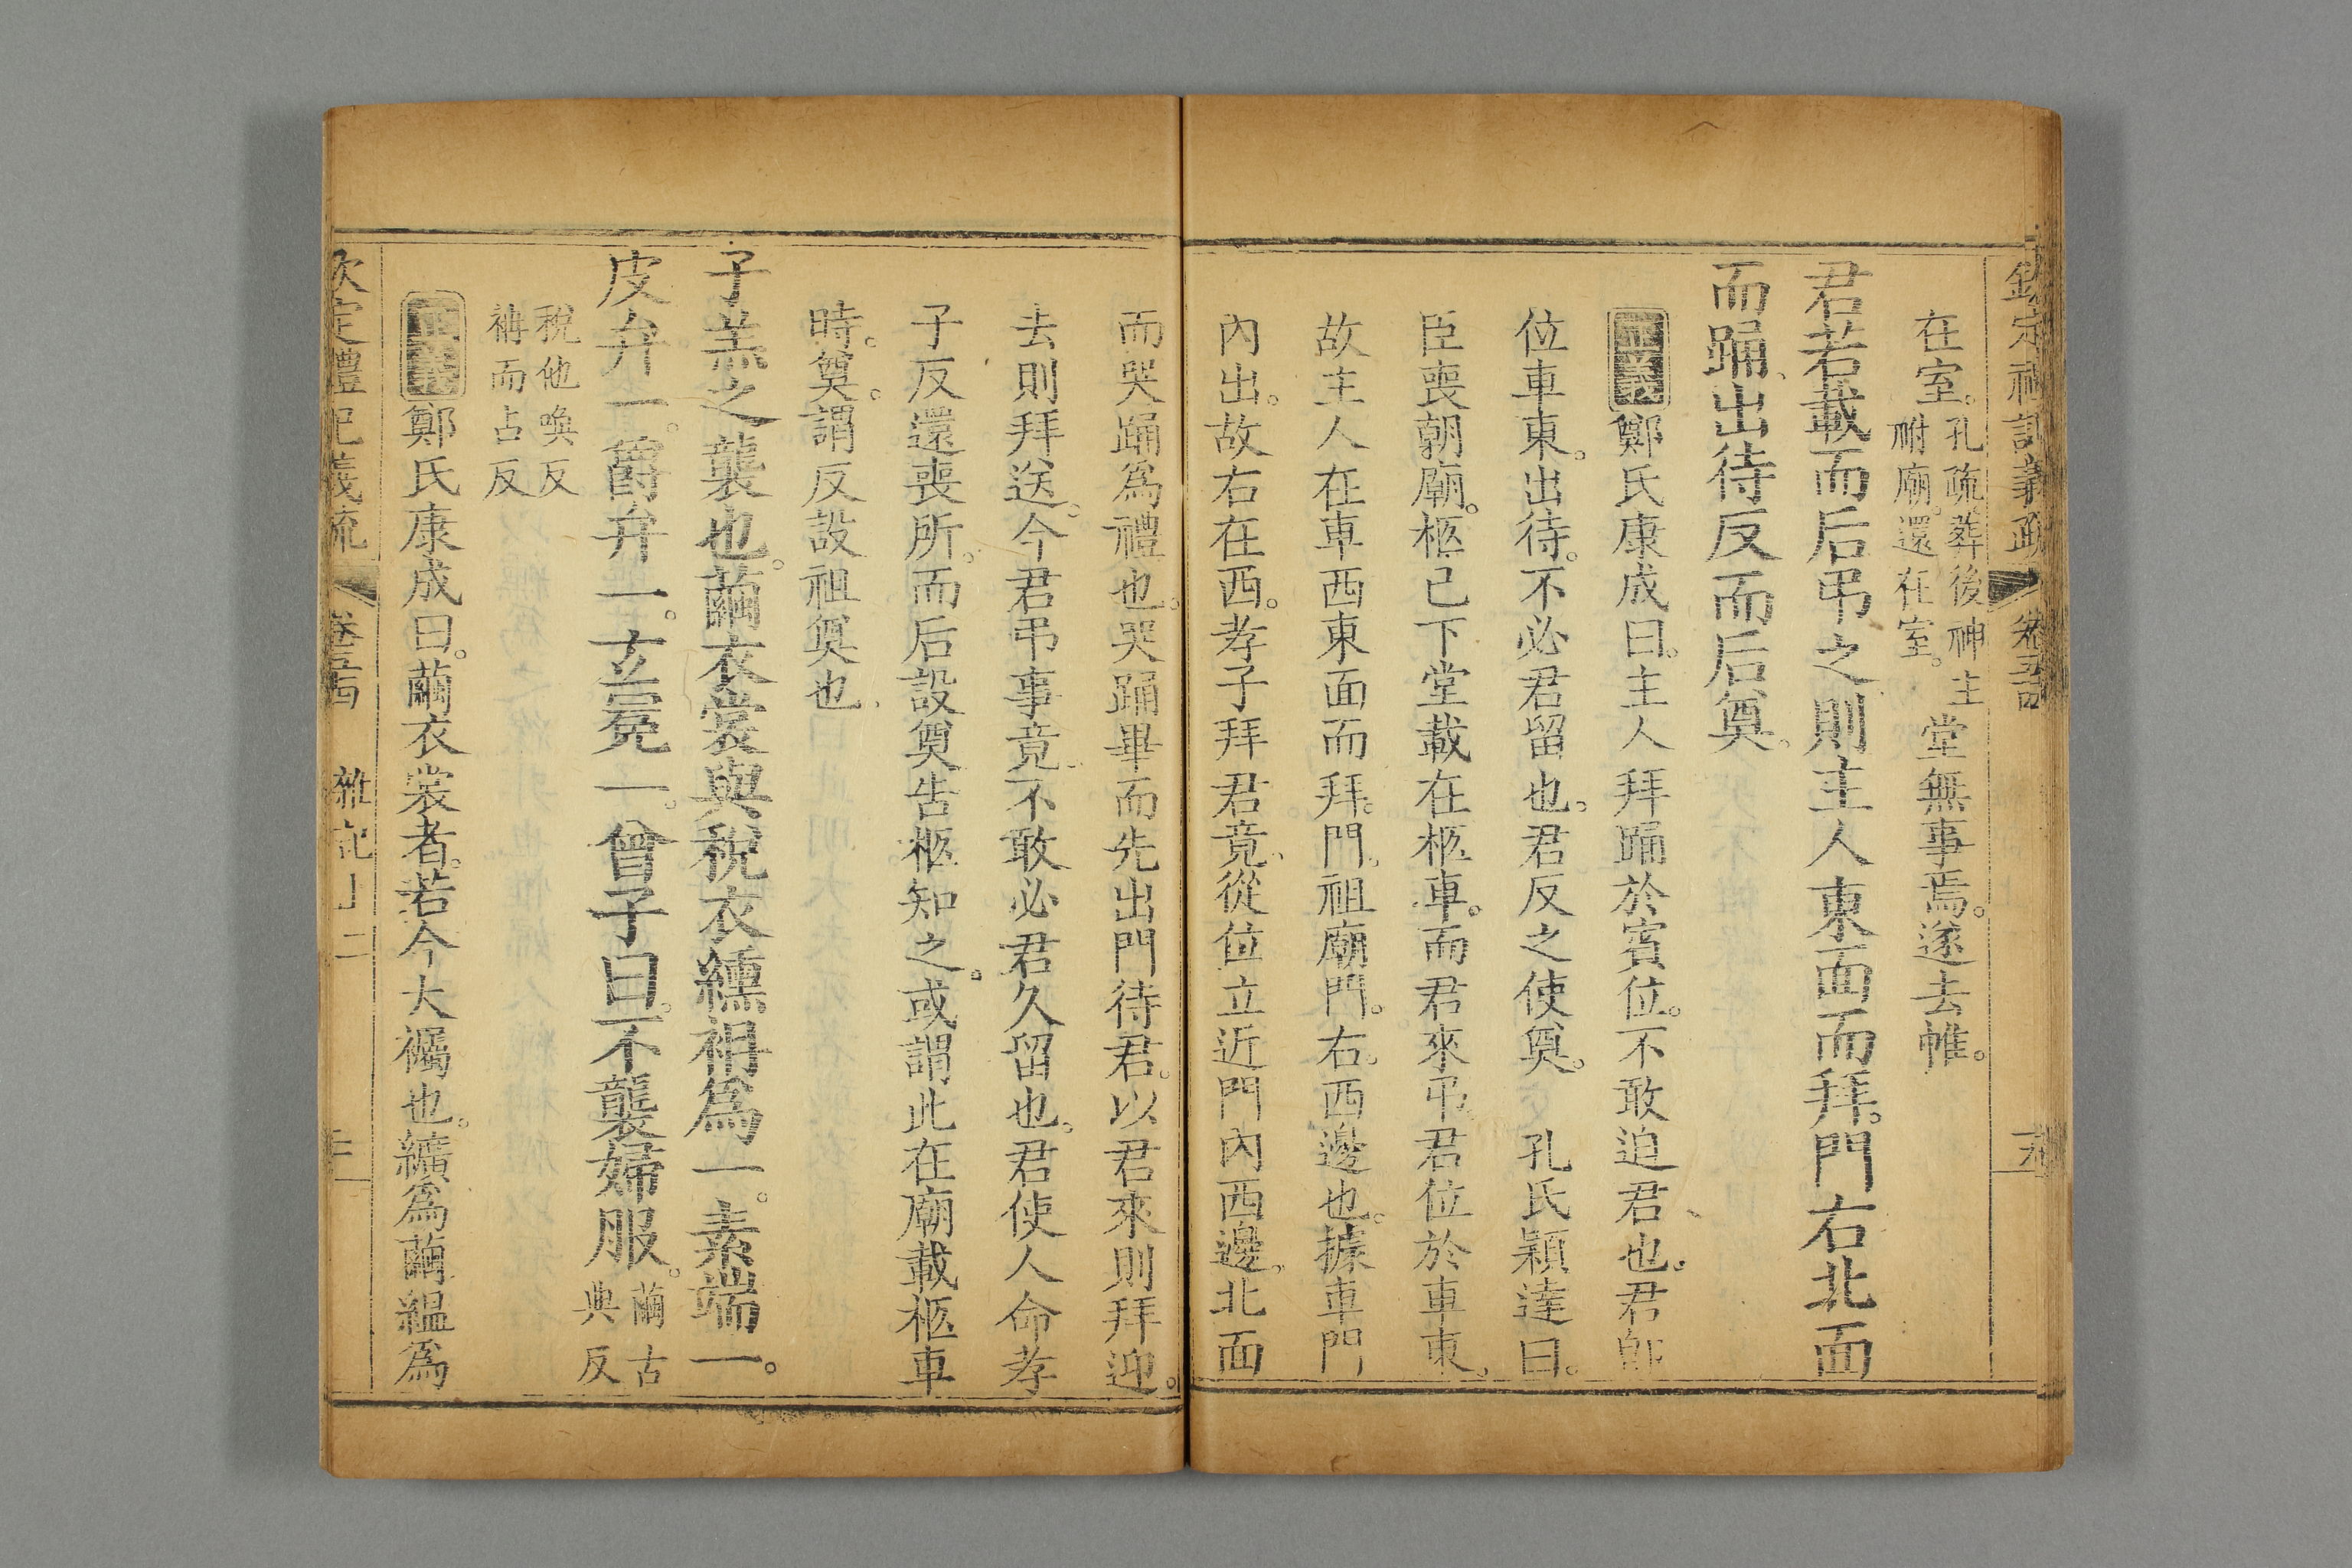 欽定禮記義疏 卷五十四
在室。孔疏。葬後神主祔廟。還在室。堂無事焉。遂去帷。
君若載而后弔之則主人東面而拜。門右北面
而踊。出待反而后奠。
正義鄭氏康成曰。主人拜踊於賓位。不敢迫君也。君即
位車東。出待。不必君留也。君反之使奠。 孔氏穎達曰。
臣喪朝廟。柩已下堂載在柩車。而君來弔。君位於車東。
故主人在車西東面而拜。門。祖廟門。右。西邊也。據車門
內出。故右在西。孝子拜君竟。從位立近門內西邊。北面
而哭踊為禮也。哭踊畢而先出門待君。以君來則拜迎。
去則拜送。今君弔事竟。不敢必君久留也。君使人命孝
子反還喪所。而后設奠告柩知之。或謂此在廟載柩車
時。奠。謂反設祖奠也
子羔之襲也。繭衣裳與稅衣纁袡為一。素端一。
皮弁一。爵弁一。玄冕一。曾子曰。不襲婦服。繭古典反
稅他喚反袡而占反
正義鄭氏康成曰。繭衣裳者。若今大襡也。纊為繭縕為
欽定禮記義疏 卷五十四 雜記上二